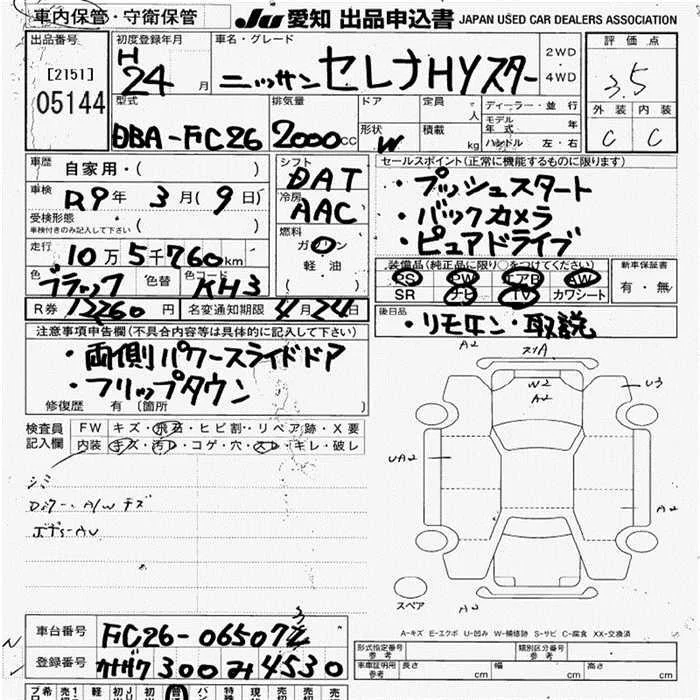 車内保管・守衛保管
JU 愛知 出品申込書 JAPAN USED CAR DEALERS ASSOCIATION
出品番号 初度登録年月 車名・グレード 評価点
H 24 月 ニッサン セレナHYスター 2WD・4WD 3.5
[2151]
05144
型式 排気量 ドア 定員 人 ディーラー・並行 外装 内装
DBA-FC26 2000cc 形状 W 積載 kg モデル年式 年 C C
ハンドル 左・右
車歴 自家用・( ) シフト セールスポイント(正常に機能するものに限ります)
DAT ・プッシュスタート
車検 R9年 3月(9日) 冷房 ・バックカメラ
AAC ・ピュアドライブ
受検形態 ( )
車検付きのみ記入して下さい
燃料 ガソリン
軽油
( )
走行 10万5千760km
装備品(純正品に限り○をつけてください) 新車保証書
色 ブラック 色替 色コード KH3 PS PW エアB AW 有・無
SR ナビ TV カワシート
R券 12260円 名変通知期限 4月24日
後日品 ・リモコン・取説
注意事項申告欄(不具合内容等は具体的に記入して下さい)
・両側パワースライドドア
・フリップダウン
修復歴 有 〔箇所 〕
検査員記入欄 FW キズ・飛石・ヒビ割・リペア跡・X要
内装 キズ・汚レ・コゲ・穴・スレ・キレ・破レ
シミ
A/Wキズ
A2
W2
A2
U3
UA2
A2
A2
スペア
A-キズ E-エクボ U-凹み W-補修跡 S-サビ C-腐食 XX-交換済
車台番号 FC26-065073
登録番号 300 み 4530
形式指定番号 参考 類別区分番号 参考
車庫証明用 参考 長さ cm 幅 cm 高さ cm